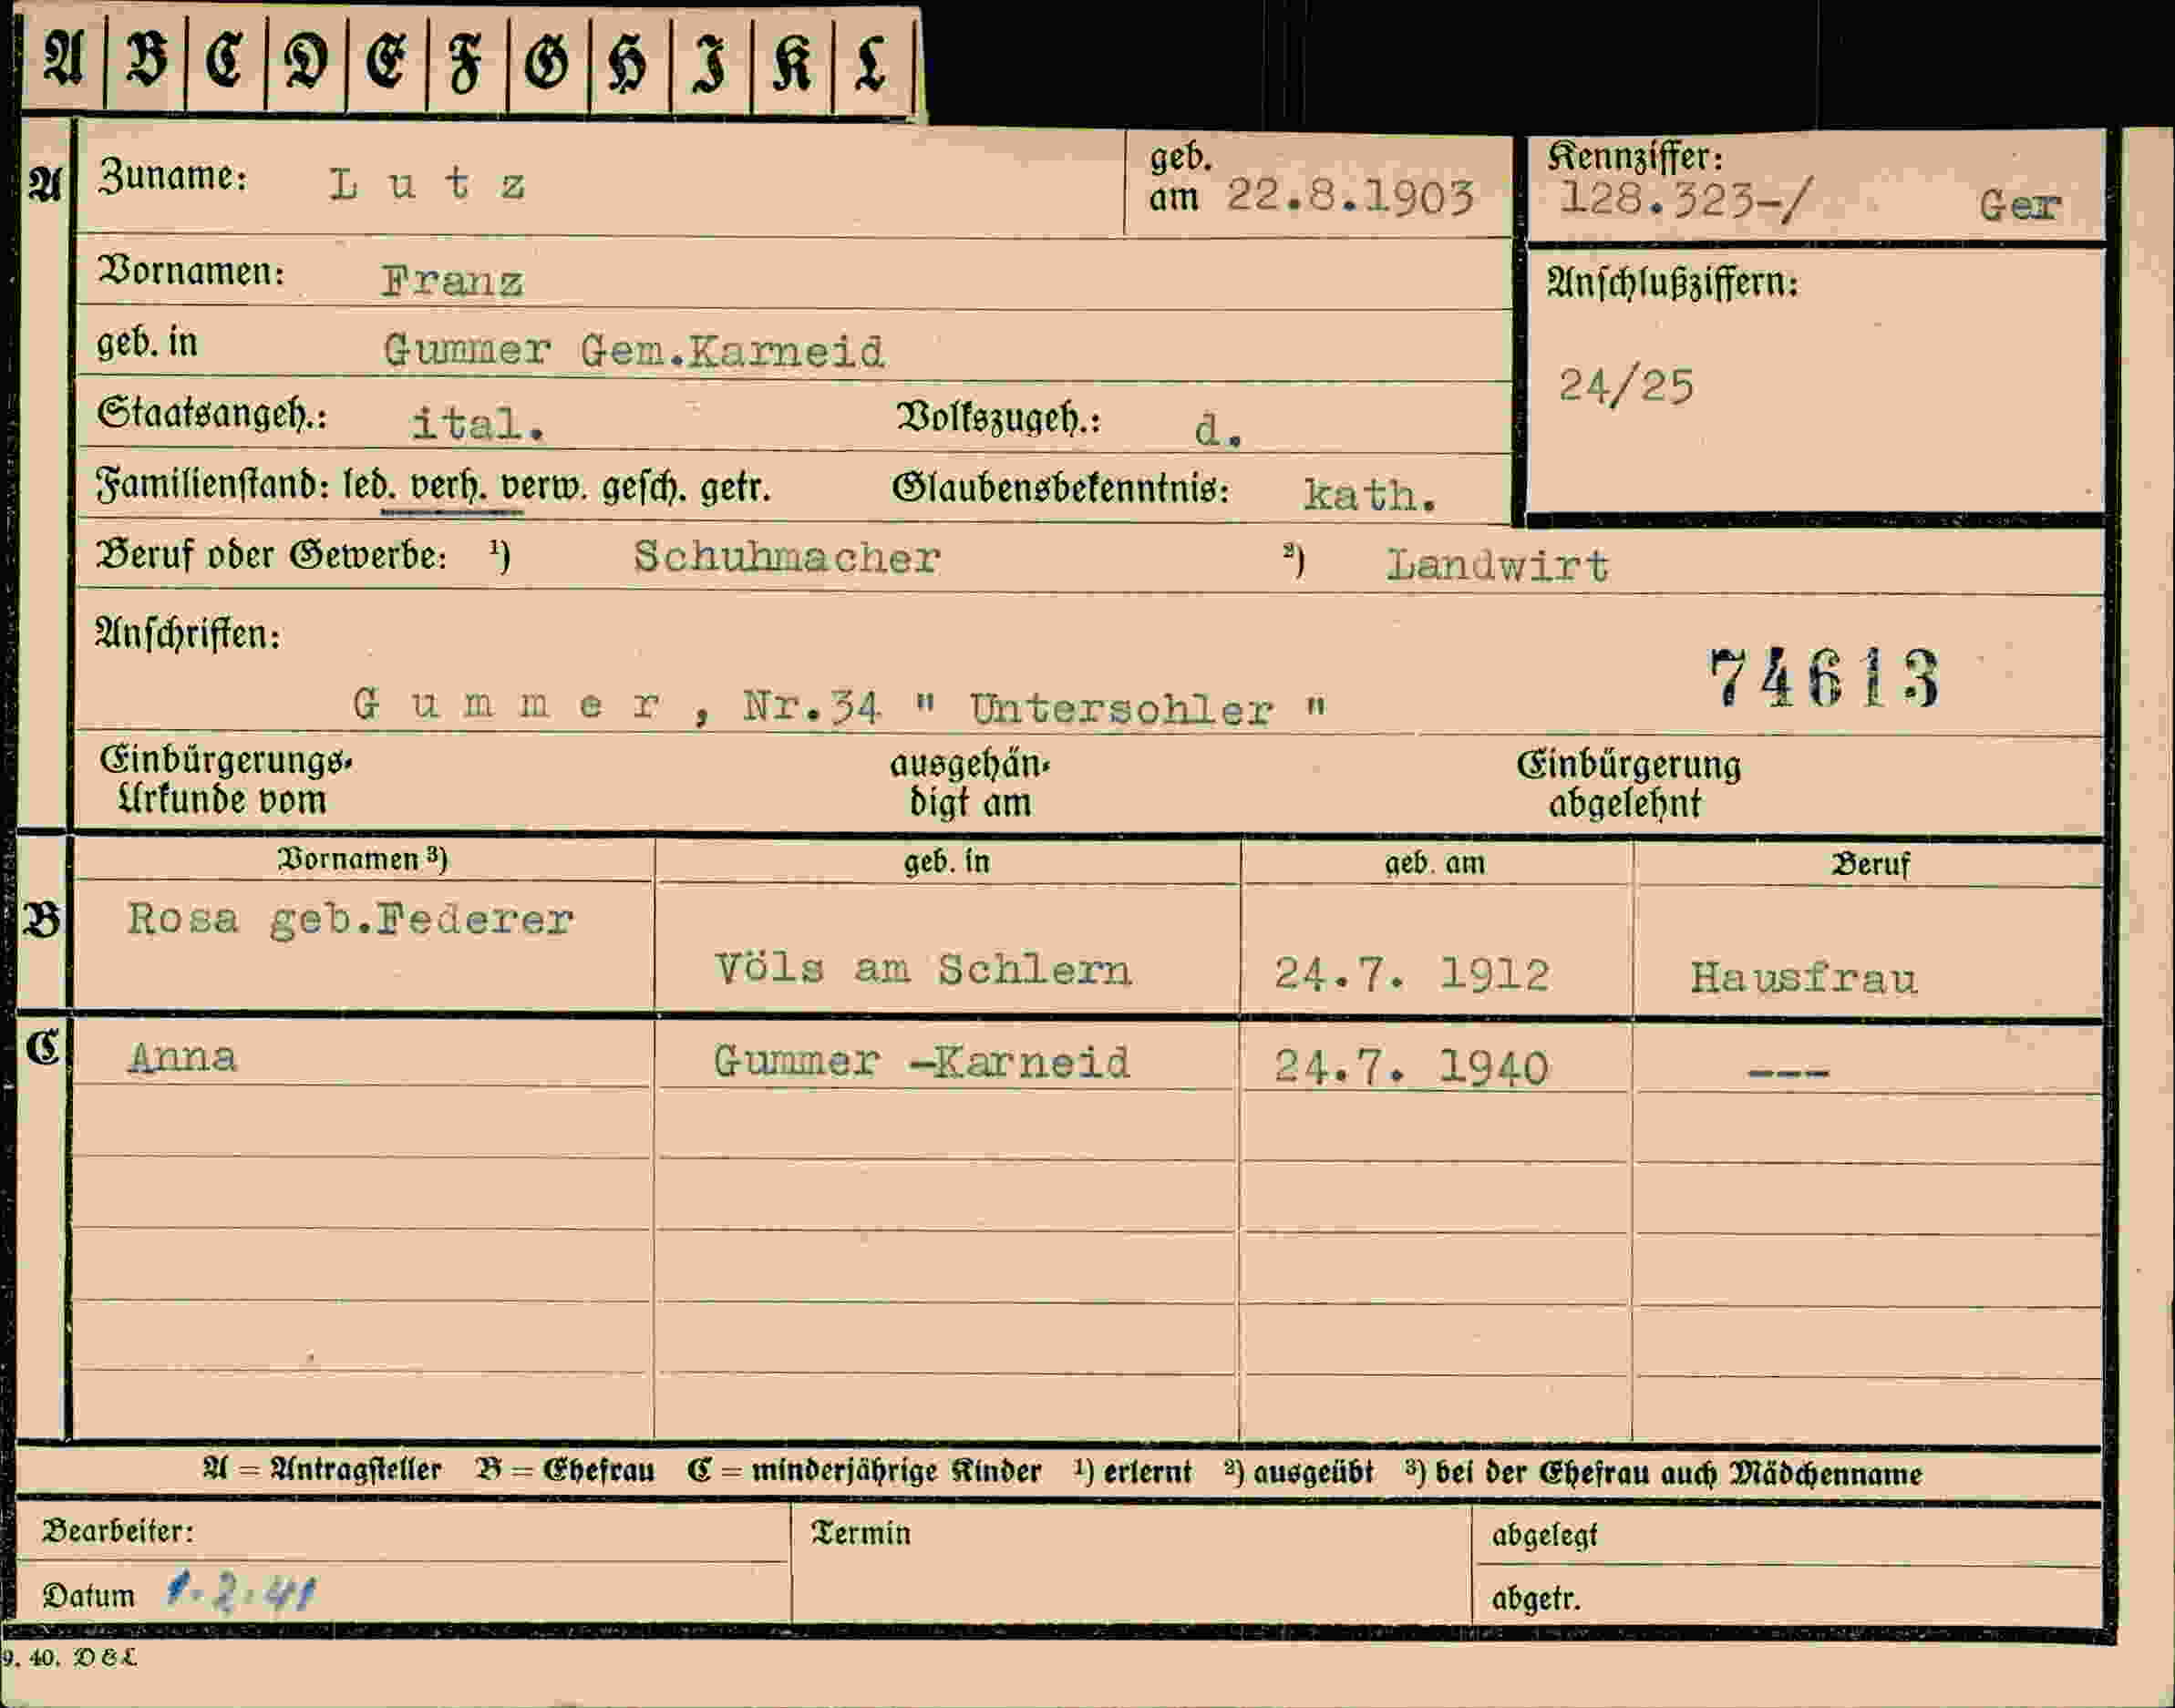 A B C D E F G H I K L
A Zuname: L u t z geb. am 22.8.1903 Kennziffer: 128.323-/ Ger
Vornamen: Franz
Anschlußziffern:
geb. in Gummer Gem.Karneid
24/25
Staatsangeh.: ital. Volkszugeh.: d.
Familienstand: led. verh. verw. gesch. getr. Glaubensbekenntnis: kath.
Beruf oder Gewerbe: ¹) Schuhmacher ²) Landwirt
Anschriften:
74613
G u m m e r , Nr.34 " Untersohler "
Einbürgerungs- ausgehän- Einbürgerung
Urkunde vom digt am abgelehnt
Vornamen ³) geb. in geb. am Beruf
B Rosa geb.Federer
Völs am Schlern 24.7. 1912 Hausfrau
C Anna Gummer -Karneid 24.7. 1940 ---
A = Antragsteller B = Ehefrau C = minderjährige Kinder ¹) erlernt ²) ausgeübt ³) bei der Ehefrau auch Mädchenname
Bearbeiter: Termin abgelegt
Datum 1.2.41 abgetr.
9. 40. D & L